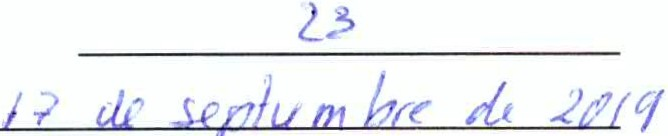 23
17 de septiembre de 2019